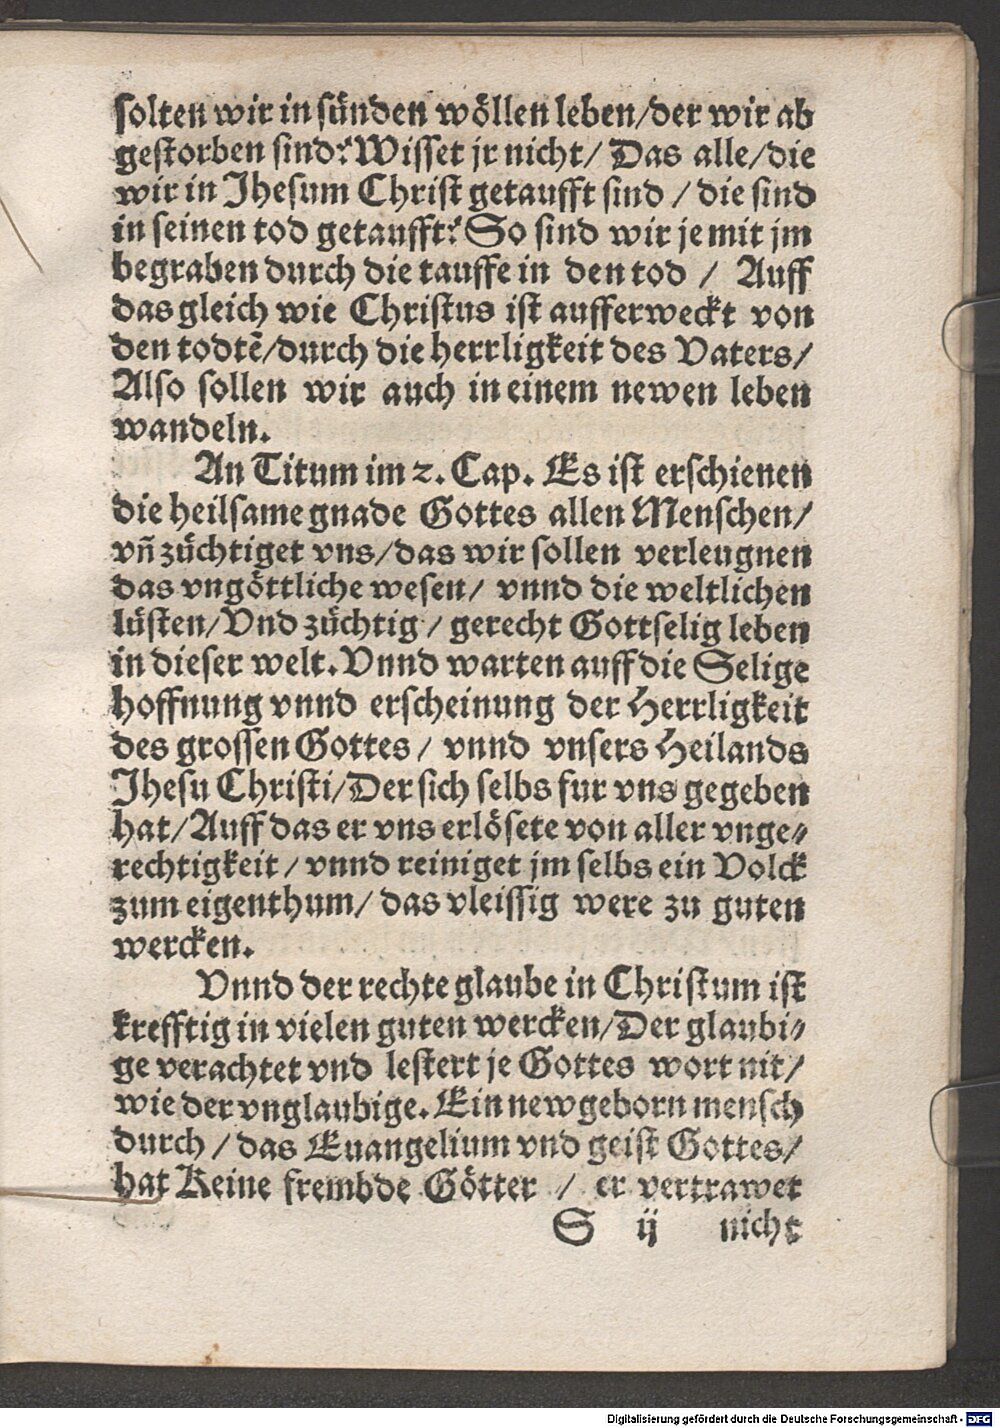 solten wir in sünden wöllen leben/der wir ab
gestorben sind? Wisset jr nicht/ Das alle/die
wir in Jhesum Christ getaufft sind / die sind
in seinen tod getaufft? So sind wir je mit jm
begraben durch die tauffe in den tod / Auff
das gleich wie Christus ist aufferweckt von
den todtē/durch die herrligkeit des Vaters/
Also sollen wir auch in einem newen leben
wandeln.
An Titum im 2. Cap. Es ist erschienen
die heilsame gnade Gottes allen Menschen/
vñ züchtiget vns/das wir sollen verleugnen
das vngöttliche wesen/ vnnd die weltlichen
lüsten/Vnd züchtig/ gerecht Gottselig leben
in dieser welt. Vnnd warten auff die Selige
hoffnung vnnd erscheinung der Herrligkeit
des grossen Gottes/ vnnd vnsers Heilands
Jhesu Christi/Der sich selbs fur vns gegeben
hat/Auff das er vns erlösete von aller vnge⸗
rechtigkeit/ vnnd reiniget jm selbs ein Volck
zum eigenthum/ das vleissig were zu guten
wercken.
Vnnd der rechte glaube in Christum ist
krefftig in vielen guten wercken/Der glaubi⸗
ge verachtet vnd lestert je Gottes wort nit/
wie der vnglaubige. Ein newgeborn mensch
durch / das Euangelium vnd geist Gottes/
hat Keine frembde Götter / er vertrawet
S ij nicht
Digitalisierung gefördert durch die Deutsche Forschungsgemeinschaft - DFG